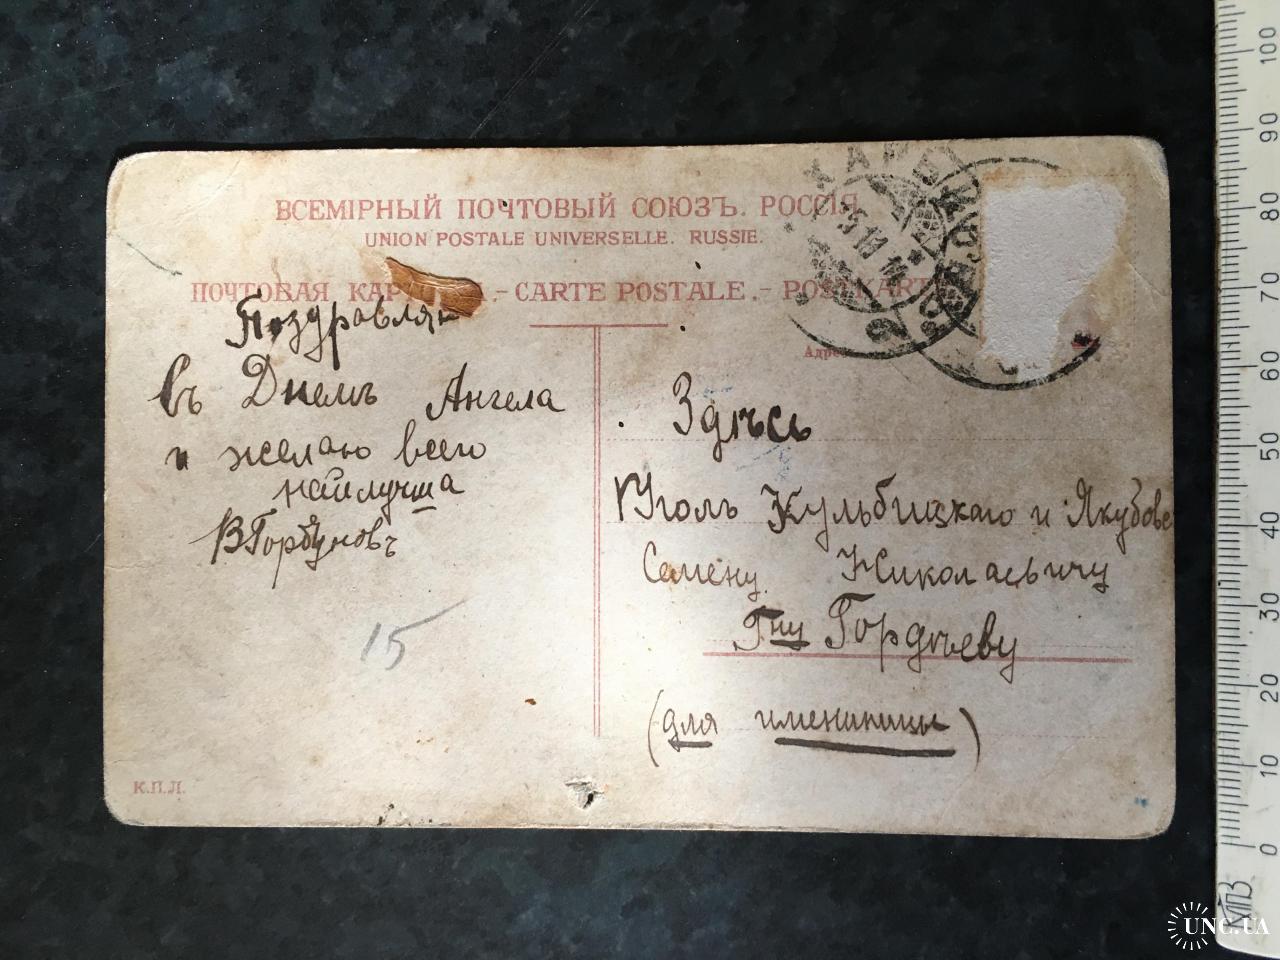 ВСЕМІРНЫЙ ПОЧТОВЫЙ СОЮЗЪ. РОССІЯ
UNION POSTALE UNIVERSELLE. RUSSIE.
ПОЧТОВАЯ КАР А.-CARTE POSTALE.-POSTKARTE
Поздравляю
въ Днемъ Ангела
и желаю всего
найлучша
ВГорбуновъ
15
К.П.Л.
Адре
Здѣсь
Уголъ Кульбицкаго и Якубовс
Семену Николаевичу
Гну Гордѣеву
(для именинницы)
0 10 20 30 40 50 60 70 80 90 100
КПЗ
UNC.UA